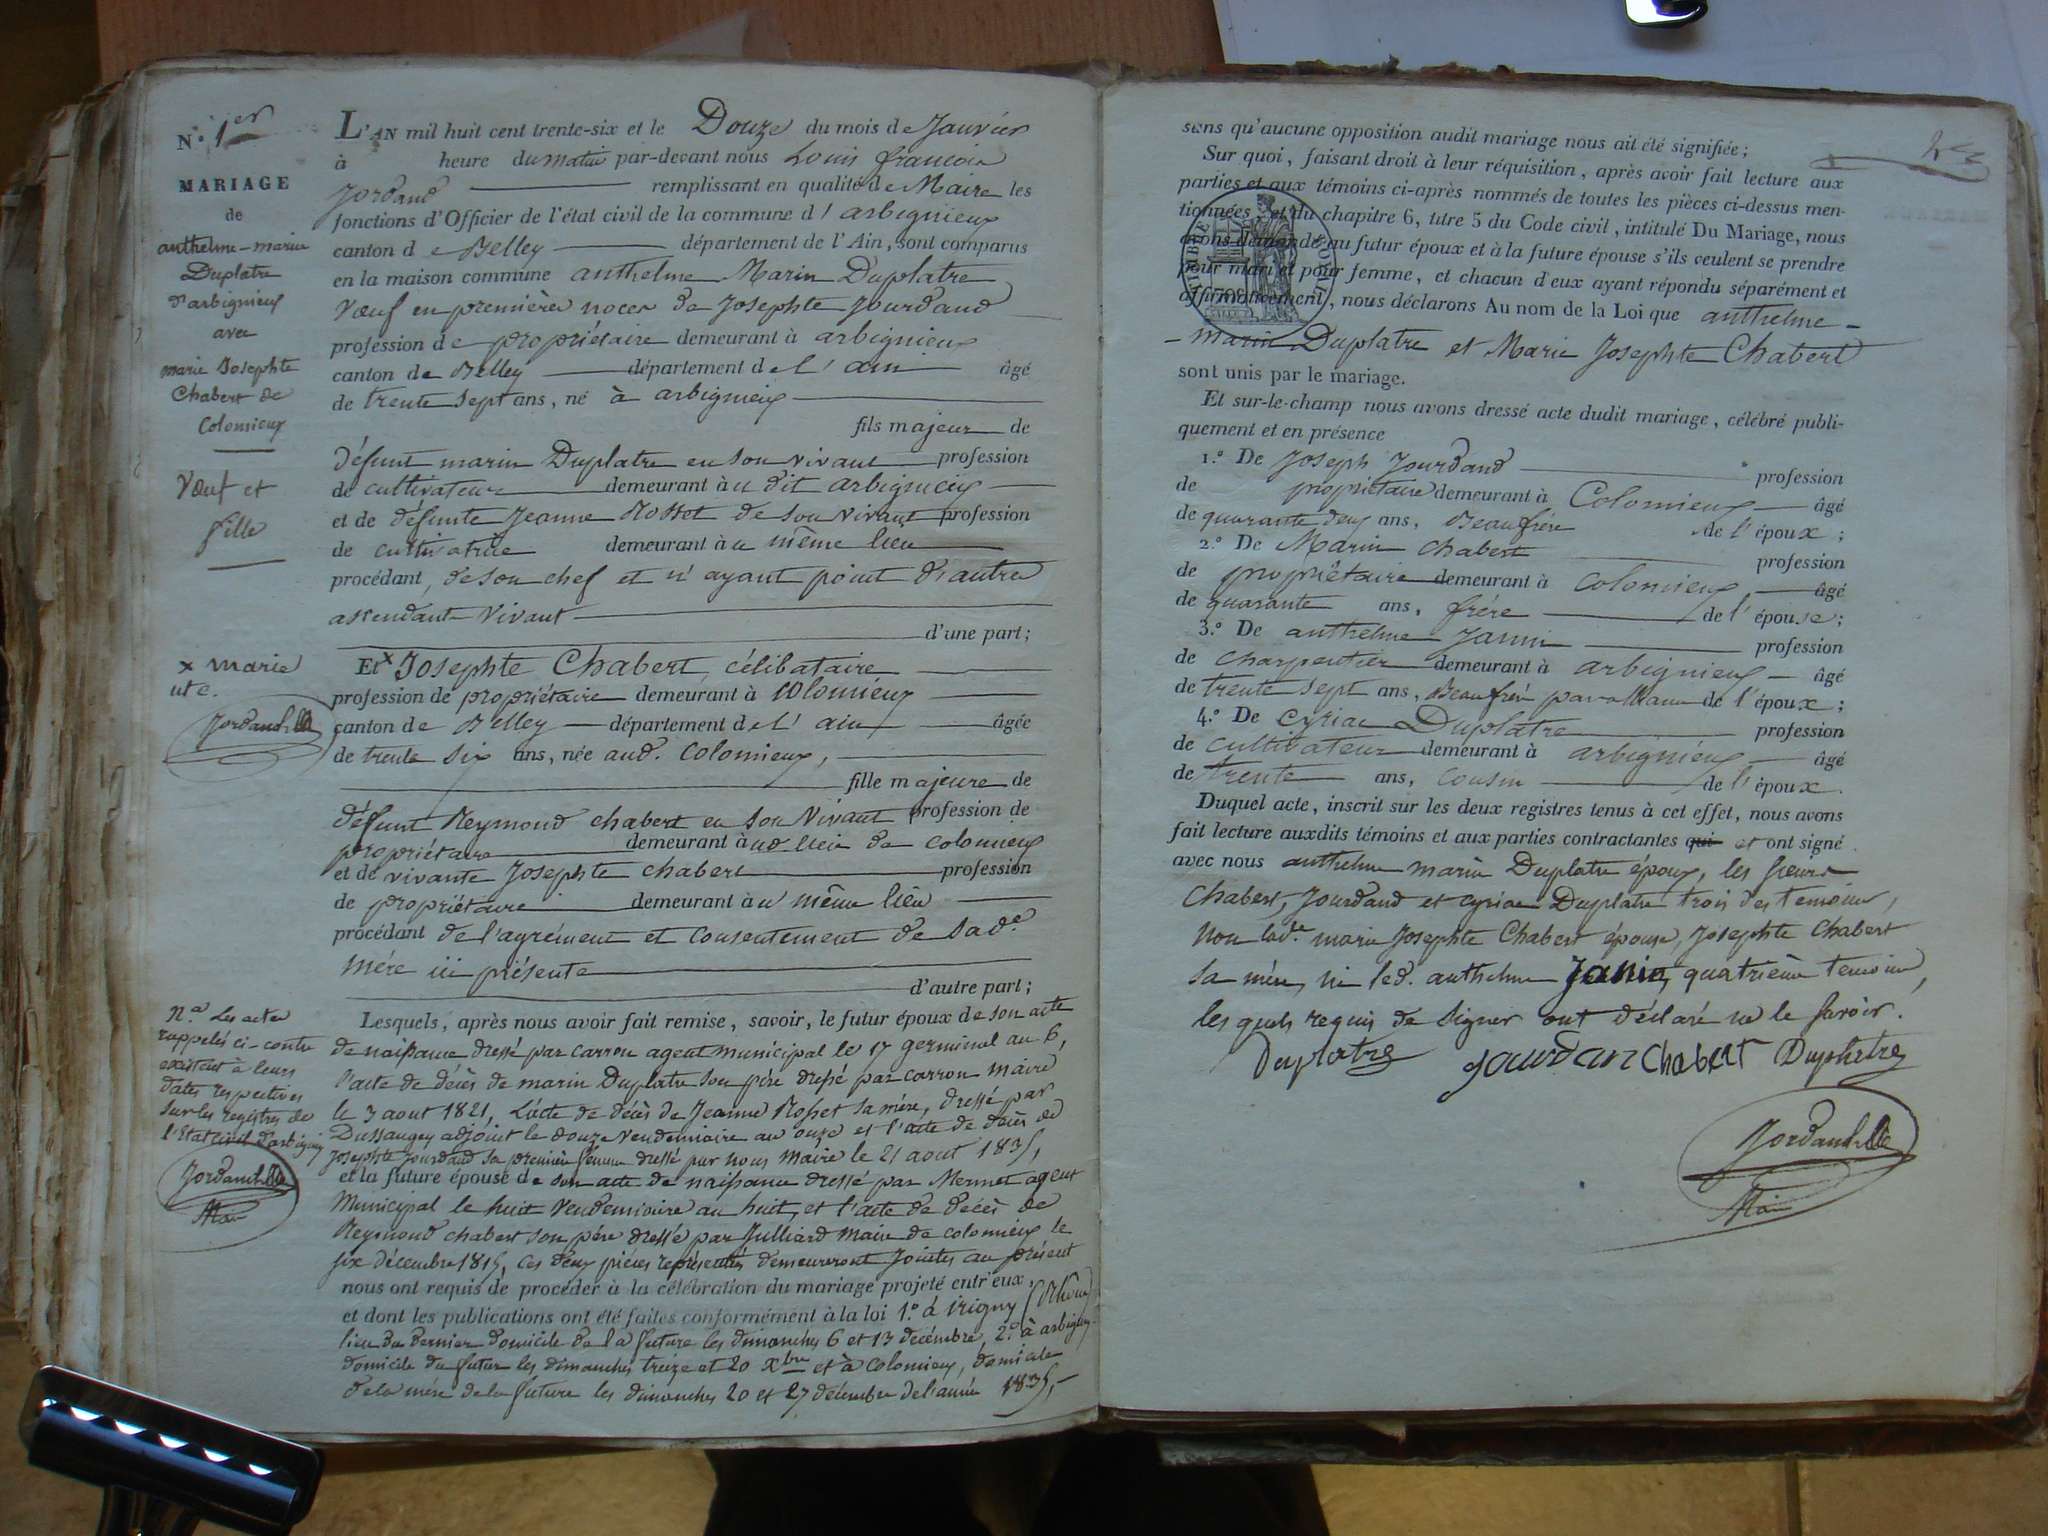 N.º 1er
MARIAGE
de
anthelme-marin
Duplatre
d'arbignieux
avec
marie Josephte
Chabert de
Colomieux
Vœuf et
fille
x marie
Jordan
N.ª Les actes
rappelés ci-contre
existent à leurs
dates respectives
sur les registres de
l'Etat civil d'arbignieux
Jordan
Maire
L'AN mil huit cent trente-six et le Douze du mois de Janvier
à heure du matin par-devant nous Louis françois
Jordand remplissant en qualité de Maire les
fonctions d'Officier de l'état civil de la commune d'arbignieux
canton de Belley département de l'Ain, sont comparus
en la maison commune anthelme Marin Duplatre
Vœuf en première noces de Josephte Jourdand
profession de propriétaire demeurant à arbignieux
canton de Belley département de l'ain âgé
de trente sept ans, né à arbignieux
fils majeur de
défunt marin Duplatre en son vivant profession
de cultivateur demeurant àu dit arbignieux
et de défunte Jeanne Rosset de son vivant profession
de cultivatrice demeurant àu même lieu
procédant, de son chef et n'ayant point d'autre
ascendant vivant
d'une part;
Etx Josephte Chabert, célibataire
profession de propriétaire demeurant à Colomieux
canton de Belley département de l'ain âgée
de trente six ans, née aud. Colomieux,
fille majeure de
défunt Reymond chabert en son vivant profession de
propriétaire demeurant àud. lieu de colomieux
et de vivante Josephte chabert profession
de propriétaire demeurant àu même lieu
procédant de l'agrément et consentement de sad.e
mére ici présente
d'autre part;
Lesquels, après nous avoir fait remise, savoir, le futur époux de son acte
de naissance dressé par carron agent municipal le 17 germinal an 6,
l'acte de décès de marin Duplatre son pére dressé par carron maire
le 3 aout 1821, L'acte de décès de Jeanne Rosset sa mére, dressé par
Dussaugey adjoint le douze vendemiaire an onze et l'acte de décès de
Josephte Jourdand sa première femme dressé par nous maire le 21 aout 1835,
et la future épouse de son acte de naissance dressé par Mermet agent
Municipal le huit vendemiaire an huit, et l'acte de décès de
Reymond chabert son pére dressé par Julliard maire de colomieux le
six décembre 1815, ces deux pièces représentés demeureront jointes au présent
nous ont requis de procéder à la célébration du mariage projeté entr'eux,
et dont les publications ont été faites conformément à la loi 1.º à irigny (Rhône)
lieu du dernier domicile de la future les dimanches 6 et 13 décembre, 2.º à arbignieux
domicile du futur les dimanches treize et 20 Xbre et à colomieux, domicile
de la mére de la future les dimanches 20 et 27 décembre de l'année 1835,
sens qu'aucune opposition audit mariage nous ait été signifiée;
Sur quoi, faisant droit à leur réquisition, après avoir fait lecture aux
parties et aux témoins ci-après nommés de toutes les pièces ci-dessus men-
tionnées, et du chapitre 6, titre 5 du Code civil, intitulé Du Mariage, nous
avons demandé au futur époux et à la future épouse s'ils veulent se prendre
pour mari et pour femme, et chacun d'eux ayant répondu séparément et
affirmativement, nous déclarons Au nom de la Loi que anthelme
marin Duplatre et Marie Josephte Chabert
sont unis par le mariage.
Et sur-le-champ nous avons dressé acte dudit mariage, célébré publi-
quement et en présence
1.º De Joseph Jourdand profession
de propriétaire demeurant à Colomieux âgé
de quarante deux ans, Beaufrére de l'époux;
2.º De Marin chabert profession
de propriétaire demeurant à colomieux âgé
de quarante ans, frére de l'épouse;
3.º De anthelme Janin profession
de charpentier demeurant à arbignieux âgé
de trente sept ans, Beaufrére par alliance de l'époux;
4.º De Cyriac Duplatre profession
de cultivateur demeurant à arbignieux âgé
de trente ans, cousin de l'époux.
Duquel acte, inscrit sur les deux registres tenus à cet effet, nous avons
fait lecture auxdits témoins et aux parties contractantes qui et ont signé
avec nous anthelme marin Duplatre époux, les sieurs
Chabert, Jourdand et cyriac Duplatre trois des temoins,
Non lad.te marie Josephte Chabert épouse, Josephte Chabert
sa mére, ni led. anthelme Janin, quatrième temoin,
les quels requis de signer ont déclaré ne le savoir.
Duplatre Jourdan Chabert Duplatre
Jordan
Maire